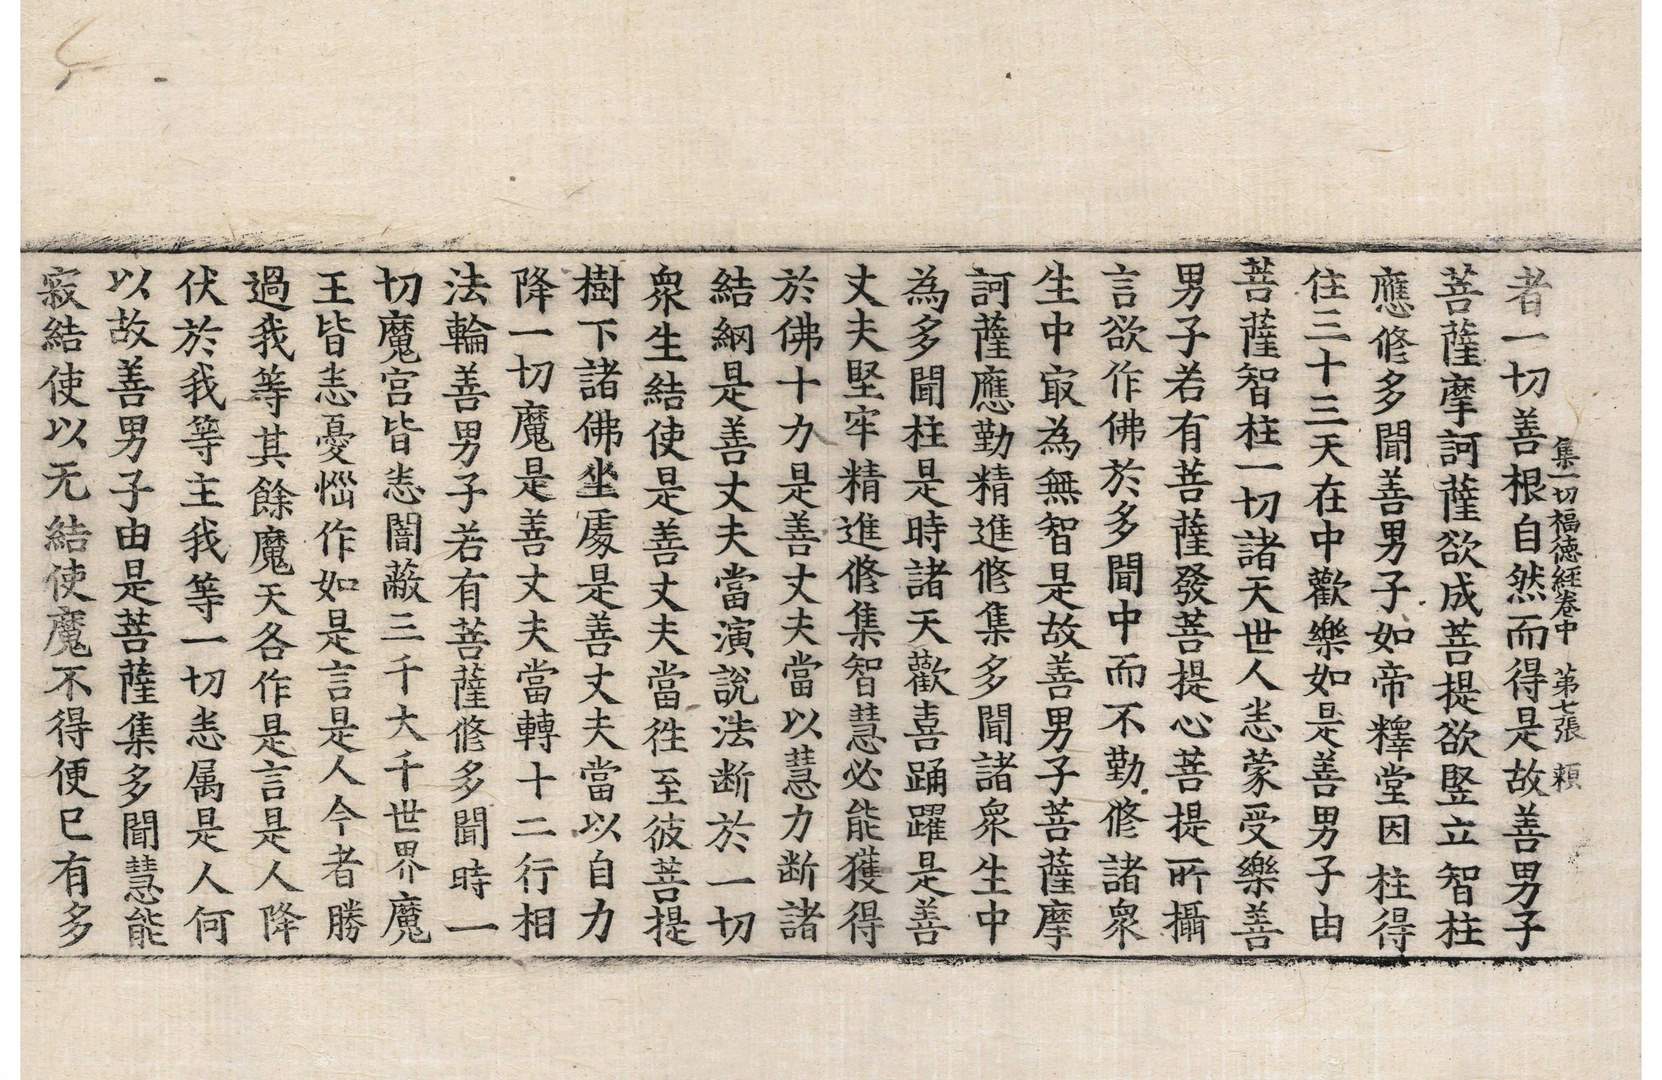 集一切福德経卷中　第七張　頼
者一切善根自然而得是故善男子
菩薩摩訶薩欲成菩提欲竪立智柱
應修多聞善男子如帝釋堂因柱得
住三十三天在中歡樂如是善男子由
菩薩智柱一切諸天世人恙蒙受樂善
男子若有菩薩發菩提心菩提所攝
言欲作佛於多聞中而不勤修諸衆
生中㝡為無智是故善男子菩薩摩
訶薩應勤精進修集多聞諸衆生中
為多聞柱是時諸天歡喜踊躍是善
丈夫堅牢精進修集智慧必能獲得
於佛十力是善丈夫當以慧力断諸
結網是善丈夫當演說法断於一切
衆生結使是善丈夫當徃至彼菩提
樹下諸佛坐處是善丈夫當以自力
降一切魔是善丈夫當轉十二行相
法輪善男子若有菩薩修多聞時一
切魔宫皆恙闇蔽三千大千世界魔
王皆恙憂惱作如是言是人今者勝
過我等其餘魔天各作是言是人降
伏於我等主我等一切恙属是人何
以故善男子由是菩薩集多聞慧能
寂結使以无結使魔不得便已有多